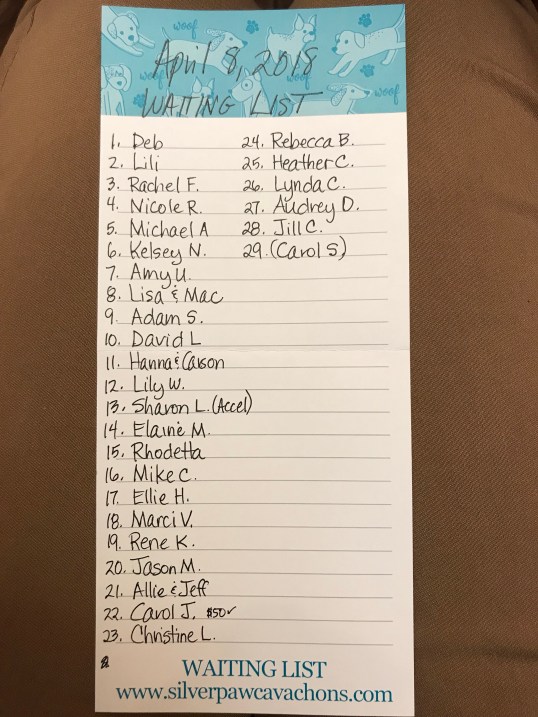 woof
woof
woof
woof
April 8, 2018
WAITING LIST
1. Deb
2. Lili
3. Rachel F.
4. Nicole R.
5. Michael A
6. Kelsey N.
7. Amy U.
8. Lisa & Mac
9. Adam S.
10. David L
11. Hanna & Carson
12. Lily W.
13. Sharon L. (Accel)
14. Elaine M.
15. Rhodetta
16. Mike C.
17. Ellie H.
18. Marci V.
19. Rene K.
20. Jason M.
21. Allie & Jeff
22. Carol J. $50✓
23. Christine L.
24. Rebecca B.
25. Heather C.
26. Lynda C.
27. Audrey D.
28. Jill C.
29. (Carol S)
WAITING LIST
www.silverpawcavachons.com